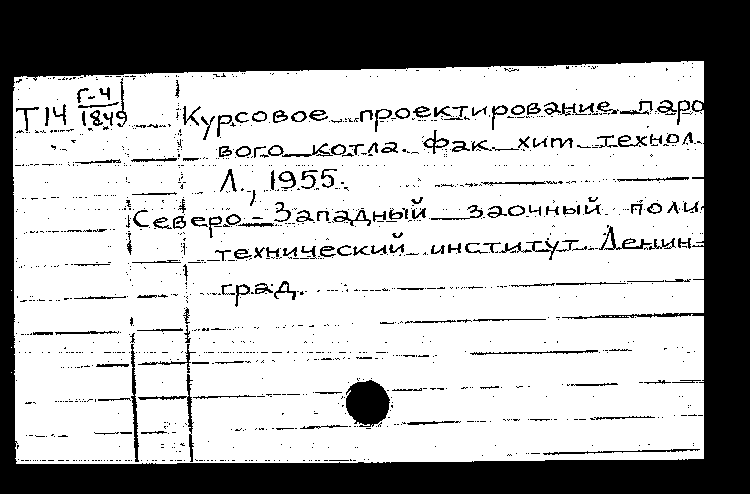 Г-4
Т14 1849 Курсовое проектирование паро
вого котла. Фак. хим. технол.
Л., 1955.
Северо-Западный заочный поли-
технический институт. Ленин-
град.